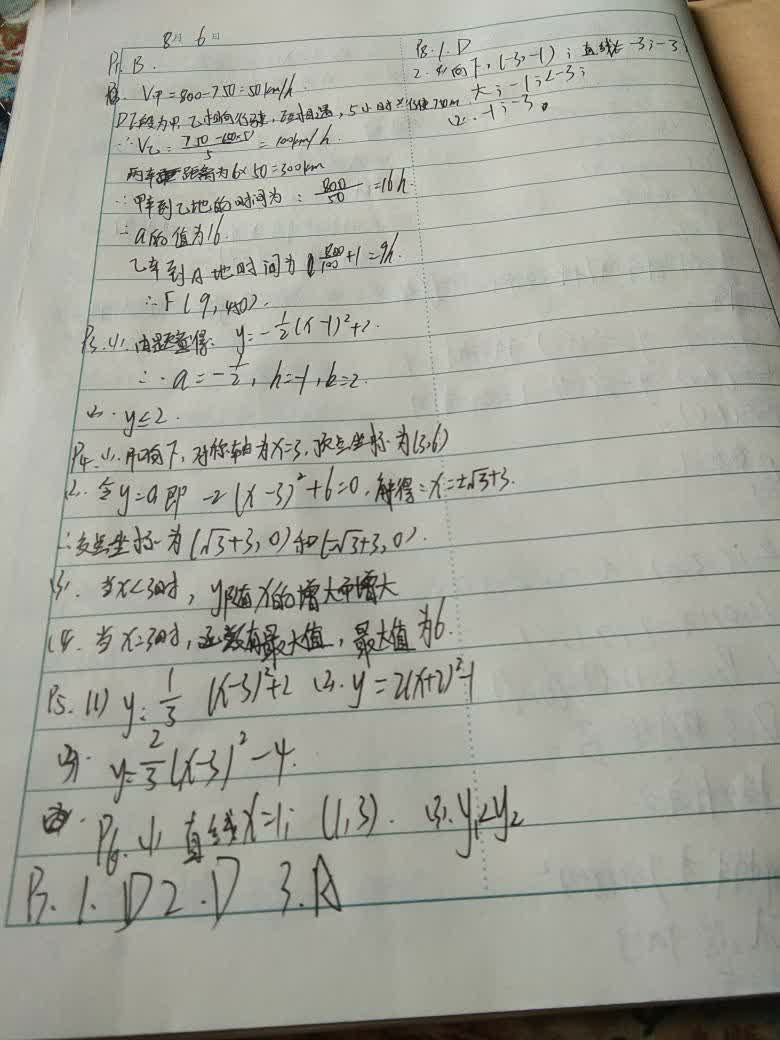 8月 6日
P1. B.
V甲=800-750=50km/h.
DE段为甲、乙相向行驶,至相遇,5小时行使750m
∴V乙=(750-50×5)/5=100km/h.
两车距离为6×50=300km
∴甲车到乙地的时间为:800/50=16h.
∴a的值为16.
乙车到A地时间为800/100+1=9h.
∴F(9,450).
P3.(1).由题意得. y=-1/2(x-1)²+2.
∴a=-1/2,h=1,k=2.
(2). y≤2.
P4.(1).开向下,对称轴为x=3,顶点坐标为(3,6)
(2. 令y=0即 -2(x-3)²+6=0,解得:x=±√3+3.
∴交点坐标为(√3+3,0)和(-√3+3,0).
(3). 当x<3时,y随x的增大而增大
(4. 当x=3时,函数有最大值,最大值为6.
P5.(1) y=1/3(x-3)²+2 (2). y=2(x+2)²-1
(3). y=2/3(x-3)²-4.
P6.(1. 直线x=1; (1,3). (3). y₁<y₂
P7. 1. D 2. D 3. A
P8. 1. D
2. (1)向下,(-3,-1);直线x=-3;-3
大;-1;<-3;
(2. -1;-3.